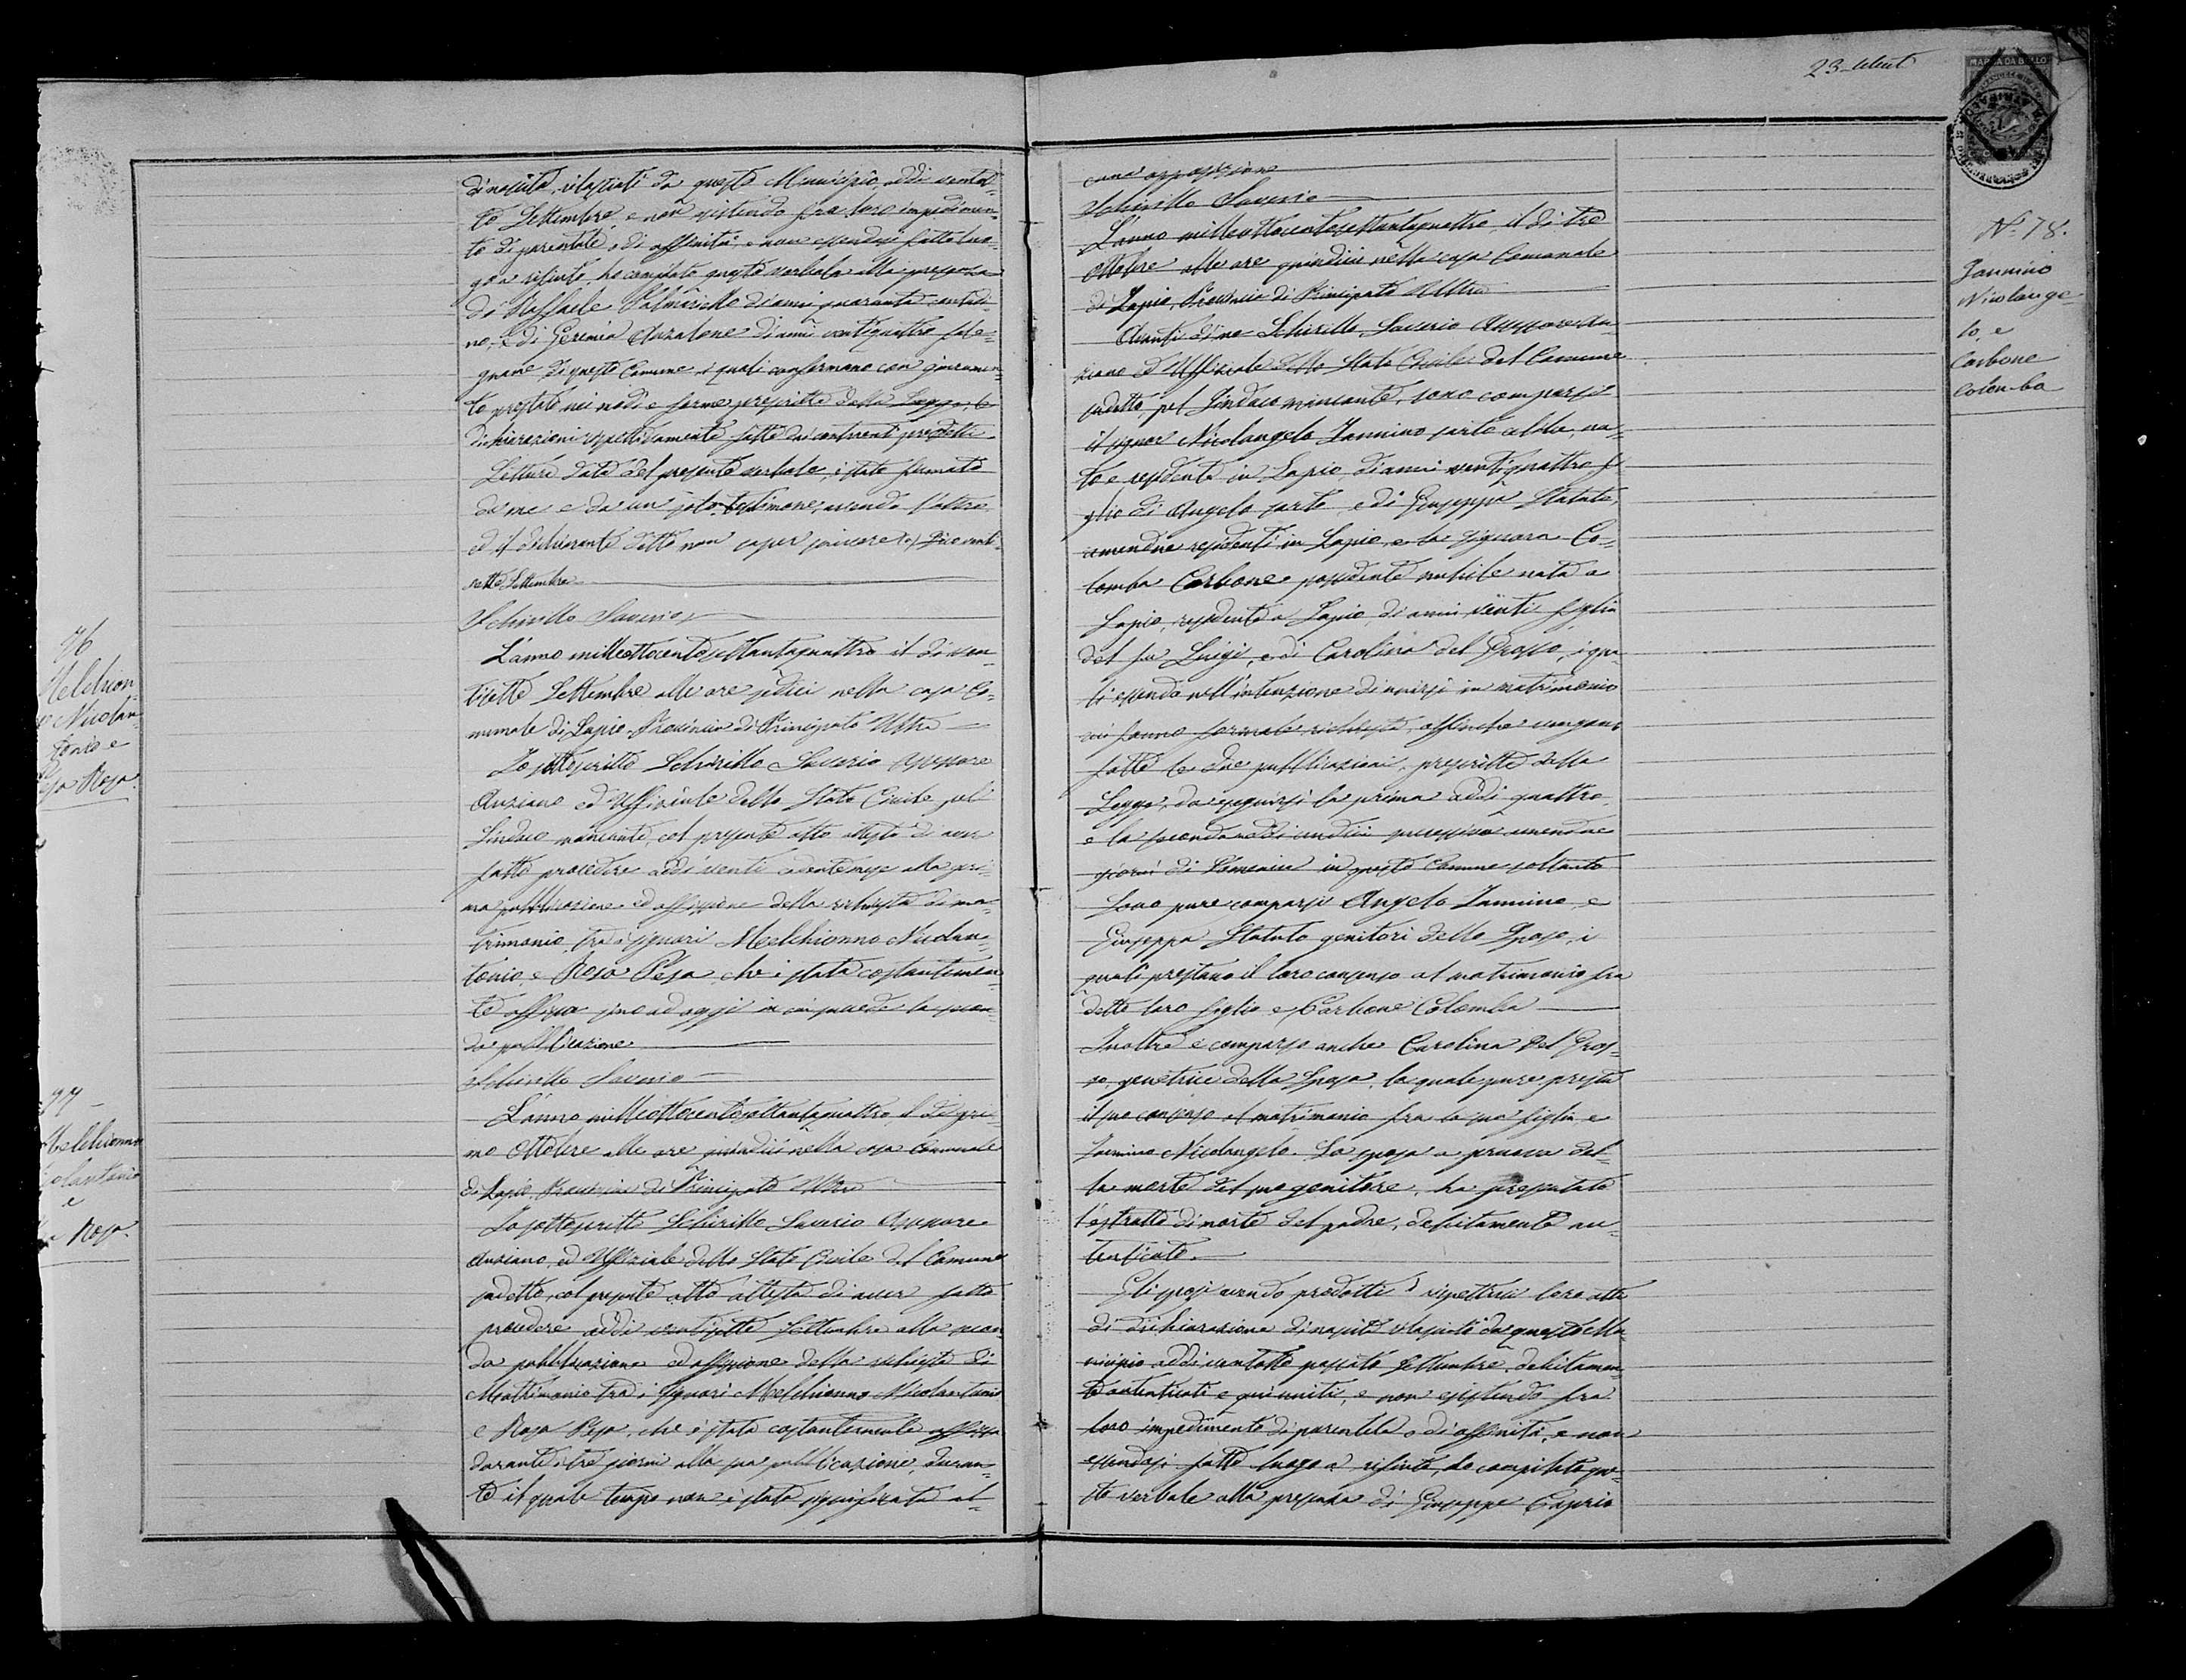 di nascita, rilasciati da questo Municipio, addì ventot-
to Settembre, e non esistendo fra loro impedimen-
to di parentela, o di affinità, e non essendosi fatto luo-
go a rifiuto, ho compilato questo verbale alla presenza
di Raffaele Palmariello di anni quaranta contadi-
no, e di Geremia Anzalone di anni ventiquattro fale-
gname di questo Comune, i quali confermano con giuramen-
to prestato nei modi e forme prescritte dalla Legge, le
dichiarazioni rispettivamente fatte dai contraenti predetti.
Lettura data del presente verbale, è stato firmato
da me e da un solo testimone, avendo l'altro
ed il dichiarante detto non saper scrivere. Dico venti-
sette Settembre
Schirillo Saverio
L'anno milleottocentosettantaquattro il dì ven-
tisette Settembre alle ore sedici nella casa Co-
munale di Lapio, Provincia di Principato Ultra
Io sottoscritto Schirillo Saverio Assessore
Anziano ed Uffiziale dello Stato Civile pel
Sindaco mancante, col presente atto attesto di aver
fatto procedere addì venti andante mese alla pri-
ma pubblicazione ed affissione della richiesta di ma-
trimonio tra i signori Melchionno Nicolan-
tonio, e Rosa Pesa, che è stata costantemen-
te affissa sino ad oggi in cui procede la secon-
da pubblicazione
Schirillo Saverio
L'anno milleottocentosettantaquattro, il dì pri-
mo Ottobre alle ore quindici nella casa Comunale
di Lapio, Provincia di Principato Ultra
Io sottoscritto Schirillo Saverio Assessore
Anziano, ed Uffiziale dello Stato Civile del Comune
sudetto, col presente atto attesto di aver fatto
procedere addì ventisette Settembre alla secon-
da pubblicazione ed affissione della richiesta di
Matrimonio tra i signori Melchionno Nicolantonio
e Rosa Pesa, che è stata costantemente affissa
durante i tre giorni alla sua pubblicazione, duran-
te il quale tempo non è stata significata al-
76
Melchion
Nicolan-
tonio e
Pesa Rosa.
77
Melchionno
Nicolantonio
e
Rosa.
23
cuna opposizione
Schirillo Saverio
L'anno milleottocentosettantaquattro, il dì tre
Ottobre alle ore quindici nella casa Comunale
di Lapio, Provincia di Principato Ultra
Avanti di me Schirillo Saverio Assessore An-
ziano ed Uffiziale dello Stato Civile del Comune
sudetto, pel Sindaco mancante, sono comparsi
il signor Nicolangelo Iannino sarto celibe, na-
to e residente in Lapio, di anni ventiquattro, fi-
glio di Angelo sarto e di Giuseppa Statuto,
amendue residenti in Lapio, e la signora Co-
lomba Carbone possidente nubile nata a
Lapio, residente a Lapio, di anni venti figlia
del fu Luigi, e di Carolina del Grosso, i qua-
li essendo nell'intenzione di unirsi in matrimonio
mi fanno formale richiesta, affinchè vengano
fatte le due pubblicazioni, prescritte dalla
Legge, da eseguirsi la prima addì quattro,
e la seconda addì undici successivo amendue
giorni di Domenica in questo Comune soltanto
Sono pure comparsi Angelo Iannino, e
Giuseppa Statuto genitori dello Sposo, i
quali prestano il loro consenso al matrimonio fra
detto loro figlio e Carbone Colomba
Inoltre è comparsa anche Carolina Del Gros-
so, genetrice della Sposa, la quale pure presta
il suo consenso al matrimonio fra la sua figlia, e
Iannino Nicolangelo. La sposa a pruova del-
la morte del suo genitore, ha presentato
l'estratto di morte del padre, debitamente au-
tenticato.
Gli sposi avendo prodotti i rispettivi loro atti
di dichiarazione di nascita rilasciati da questo Mu-
nicipio addì ventotto passato Settembre, debitamen-
te autenticati e qui uniti, e non esistendo fra
loro impedimento di parentela o di affinità, e non
essendosi fatto luogo a rifiuto, ho compilato que-
sto verbale alla presenza di Giuseppe Caprio
MARCA DA BOLLO
N. 78.
Iannino
Nicolange-
lo, e
Carbone
Colomba